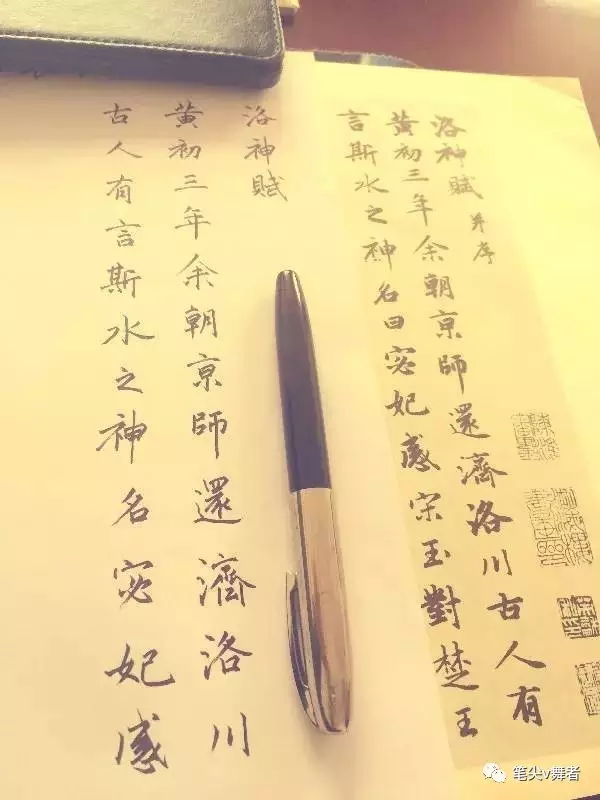 洛神賦并序
黄初三年余朝京師還濟洛川古人有
言斯水之神名曰宓妃感宋玉對楚王
洛神賦
黄初三年余朝京師還濟洛川
古人有言斯水之神名宓妃感
笔尖v舞者